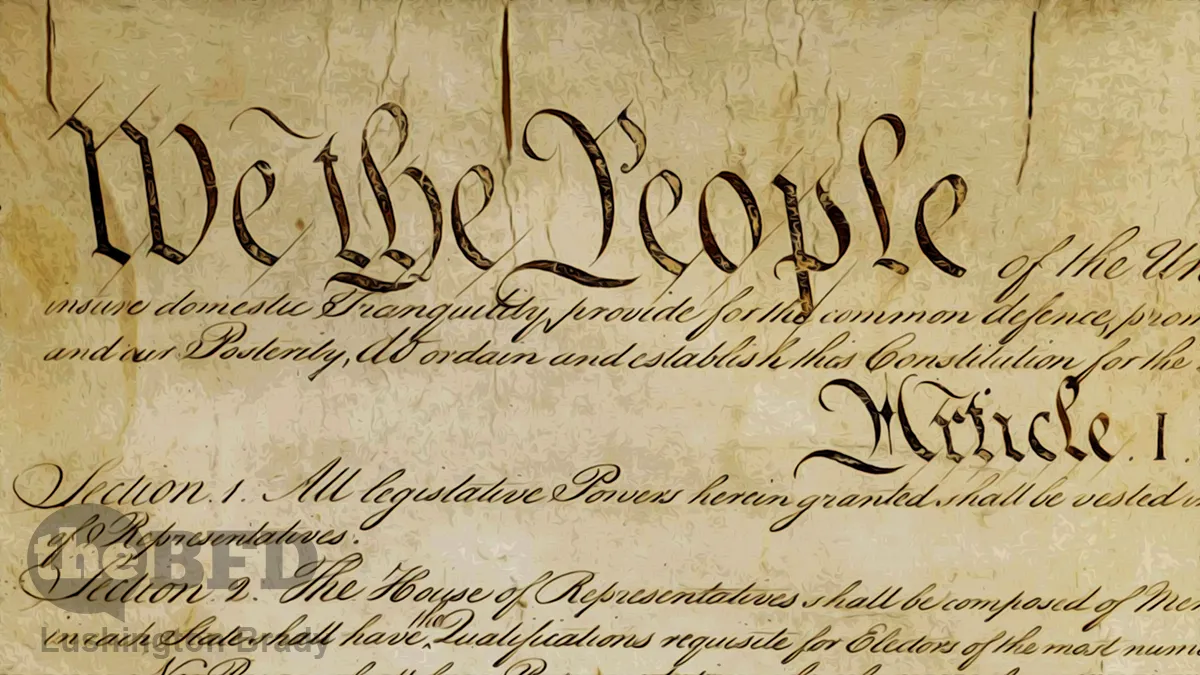 We the People of the Un
insure domestic Tranquility, provide for the common defence, prom
and our Posterity, do ordain and establish this Constitution for the
Article. I.
Section. 1. All legislative Powers herein granted shall be vested
of Representatives.
Section. 2. The House of Representatives shall be composed of Me
in each State shall have the Qualifications requisite for Electors of the most num
No Person shall
the BFD
Lushington Brady